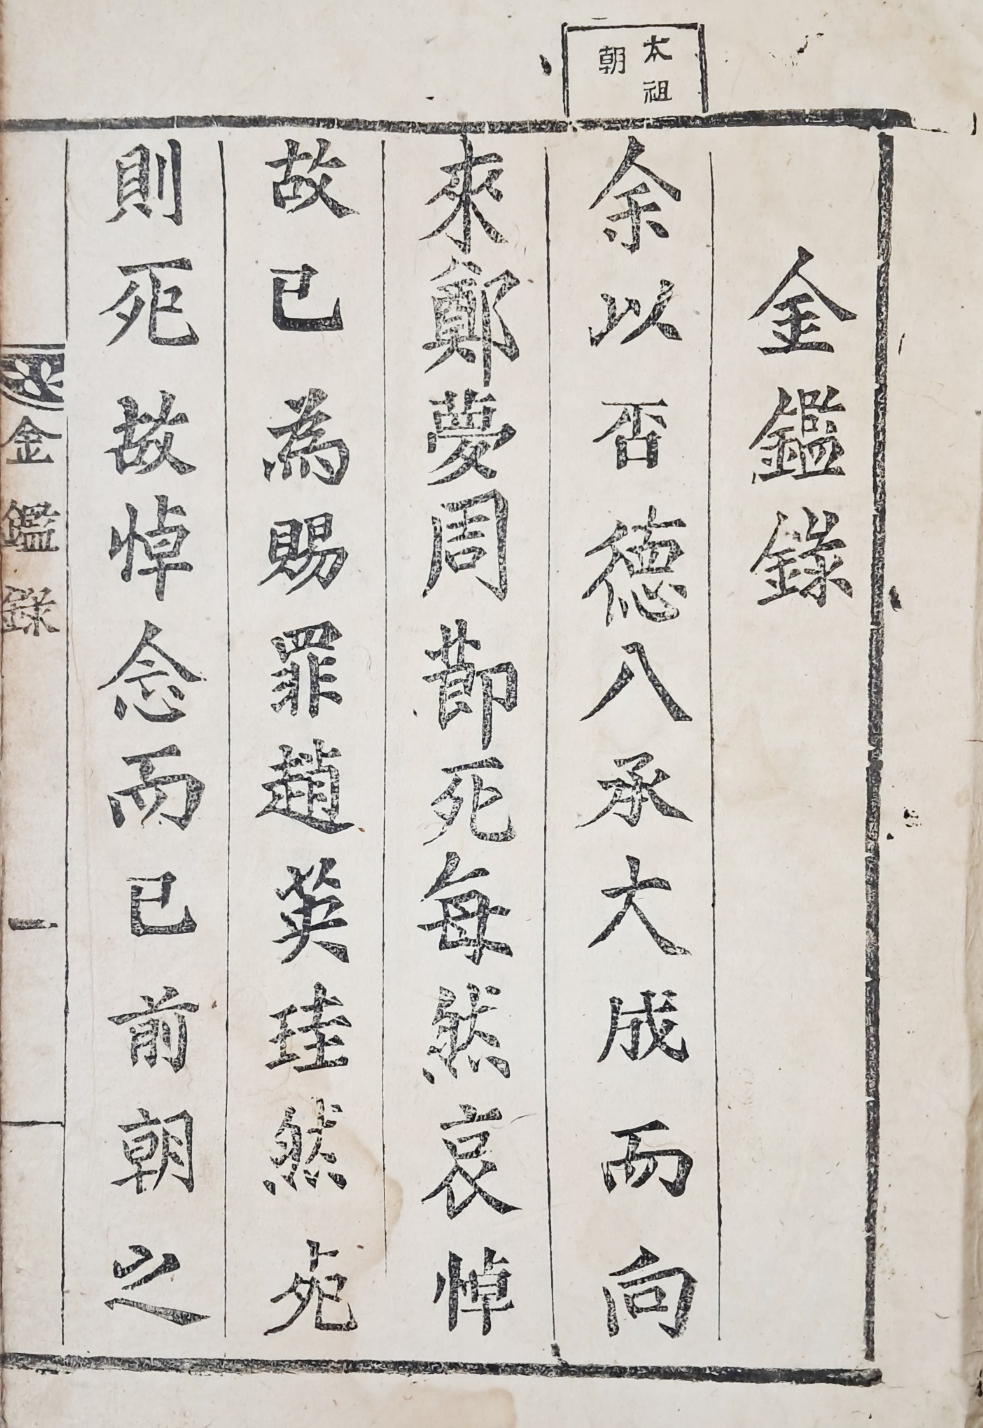 太祖
朝
金鑑錄
余以否德八承大成而向
來鄭夢周莭死每然哀悼
故已為賜罪趙英珪然宛
則死故悼念而已前朝之
金鑑錄 一